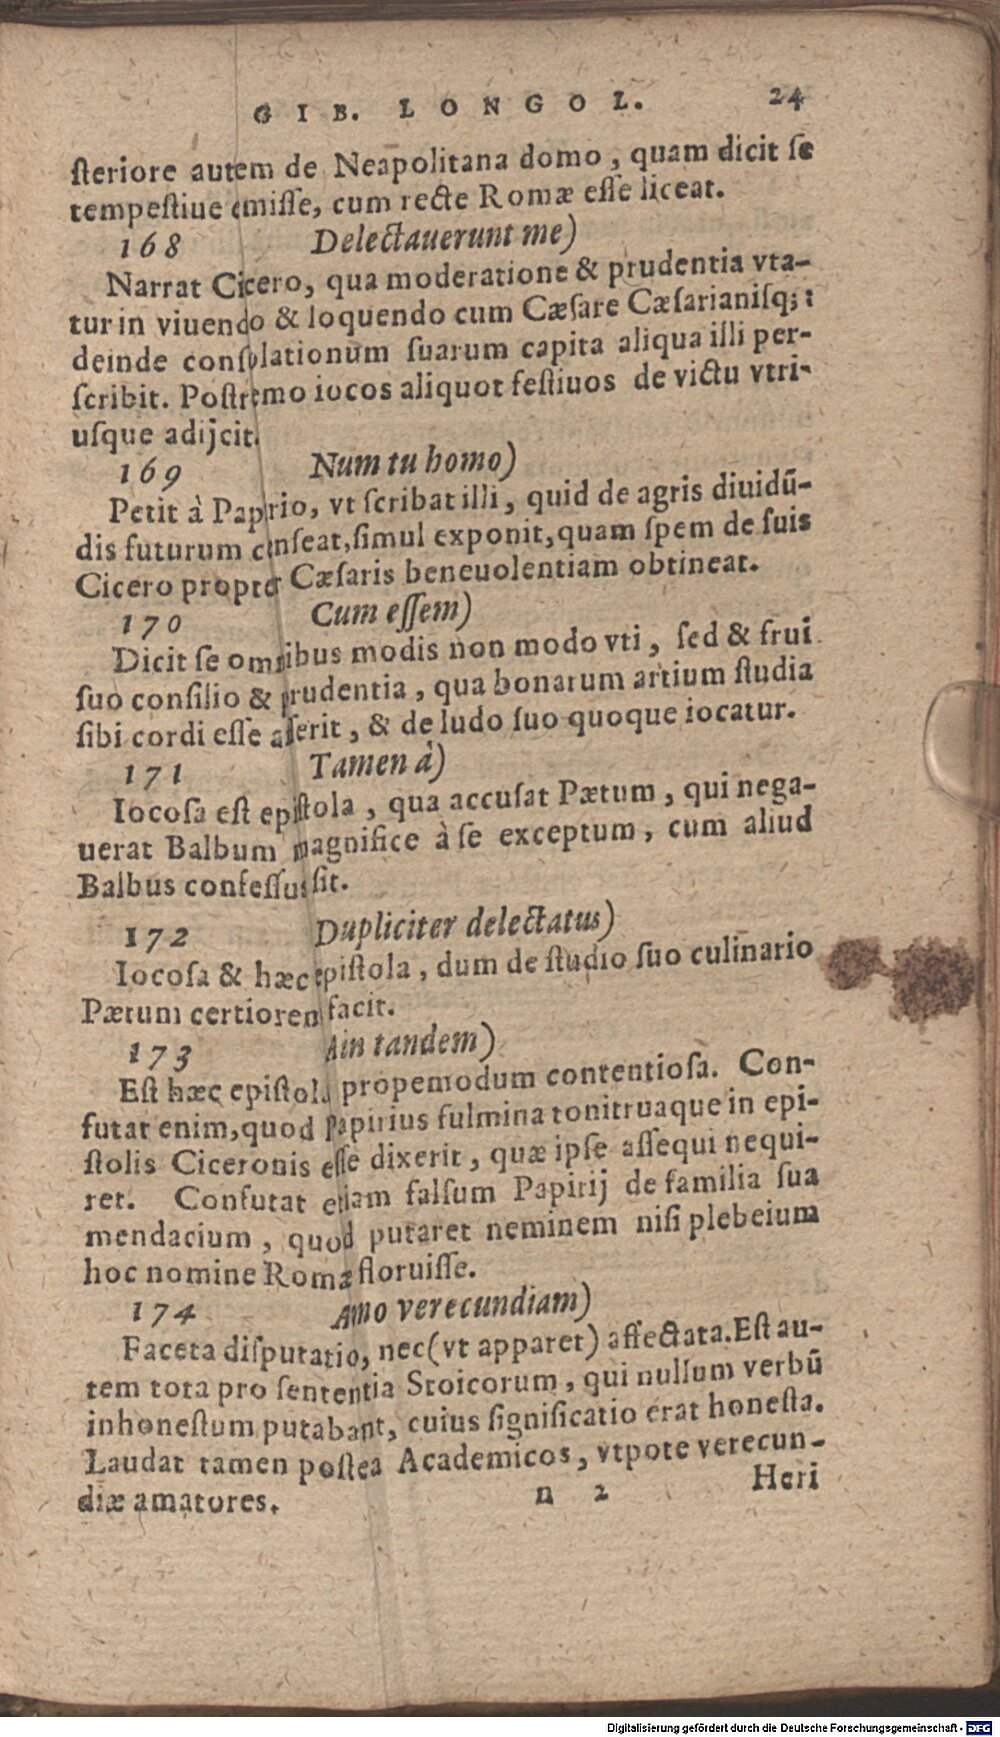 GIB. LONGOL. 24
ſteriore autem de Neapolitana domo, quam dicit ſe
tempeſtiue emiſſe, cum recte Romæ eſſe liceat.
168 Delectauerunt me)
Narrat Cicero, qua moderatione & prudentia vta-
tur in viuendo & loquendo cum Cæſare Cæſarianiſq; :
deinde conſolationum ſuarum capita aliqua illi per-
ſcribit. Poſtremo iocos aliquot feſtiuos de victu vtri-
uſque adijcit.
169 Num tu homo)
Petit à Papirio, vt ſcribat illi, quid de agris diuidū-
dis futurum cenſeat, ſimul exponit, quam ſpem de ſuis
Cicero propter Cæſaris beneuolentiam obtineat.
170 Cum eſſem)
Dicit ſe omnibus modis non modo vti, ſed & frui
ſuo conſilio & prudentia, qua bonarum artium ſtudia
ſibi cordi eſſe aſerit, & de ludo ſuo quoque iocatur.
171 Tamen à)
Iocoſa eſt epiſtola, qua accuſat Pætum, qui nega-
uerat Balbum magnifice à ſe exceptum, cum aliud
Balbus confeſſus ſit.
172 Dupliciter delectatus)
Iocoſa & hæc epiſtola, dum de ſtudio ſuo culinario
Pætum certiorem facit.
173 Ain tandem)
Eſt hæc epiſtola propemodum contentioſa. Con-
futat enim, quod Papirius fulmina tonitruaque in epi-
ſtolis Ciceronis eſſe dixerit, quæ ipſe aſſequi nequi-
ret. Confutat etiam falſum Papirij de familia ſua
mendacium, quod putaret neminem niſi plebeium
hoc nomine Romæ floruiſſe.
174 Amo verecundiam)
Faceta diſputatio, nec (vt apparet) affectata. Eſt au-
tem tota pro ſententia Stoicorum, qui nullum verbū
inhoneſtum putabant, cuius ſignificatio erat honeſta.
Laudat tamen poſtea Academicos, vtpote verecun-
diæ amatores. n 2 Heri
Digitalisierung gefördert durch die Deutsche Forschungsgemeinschaft - DFG